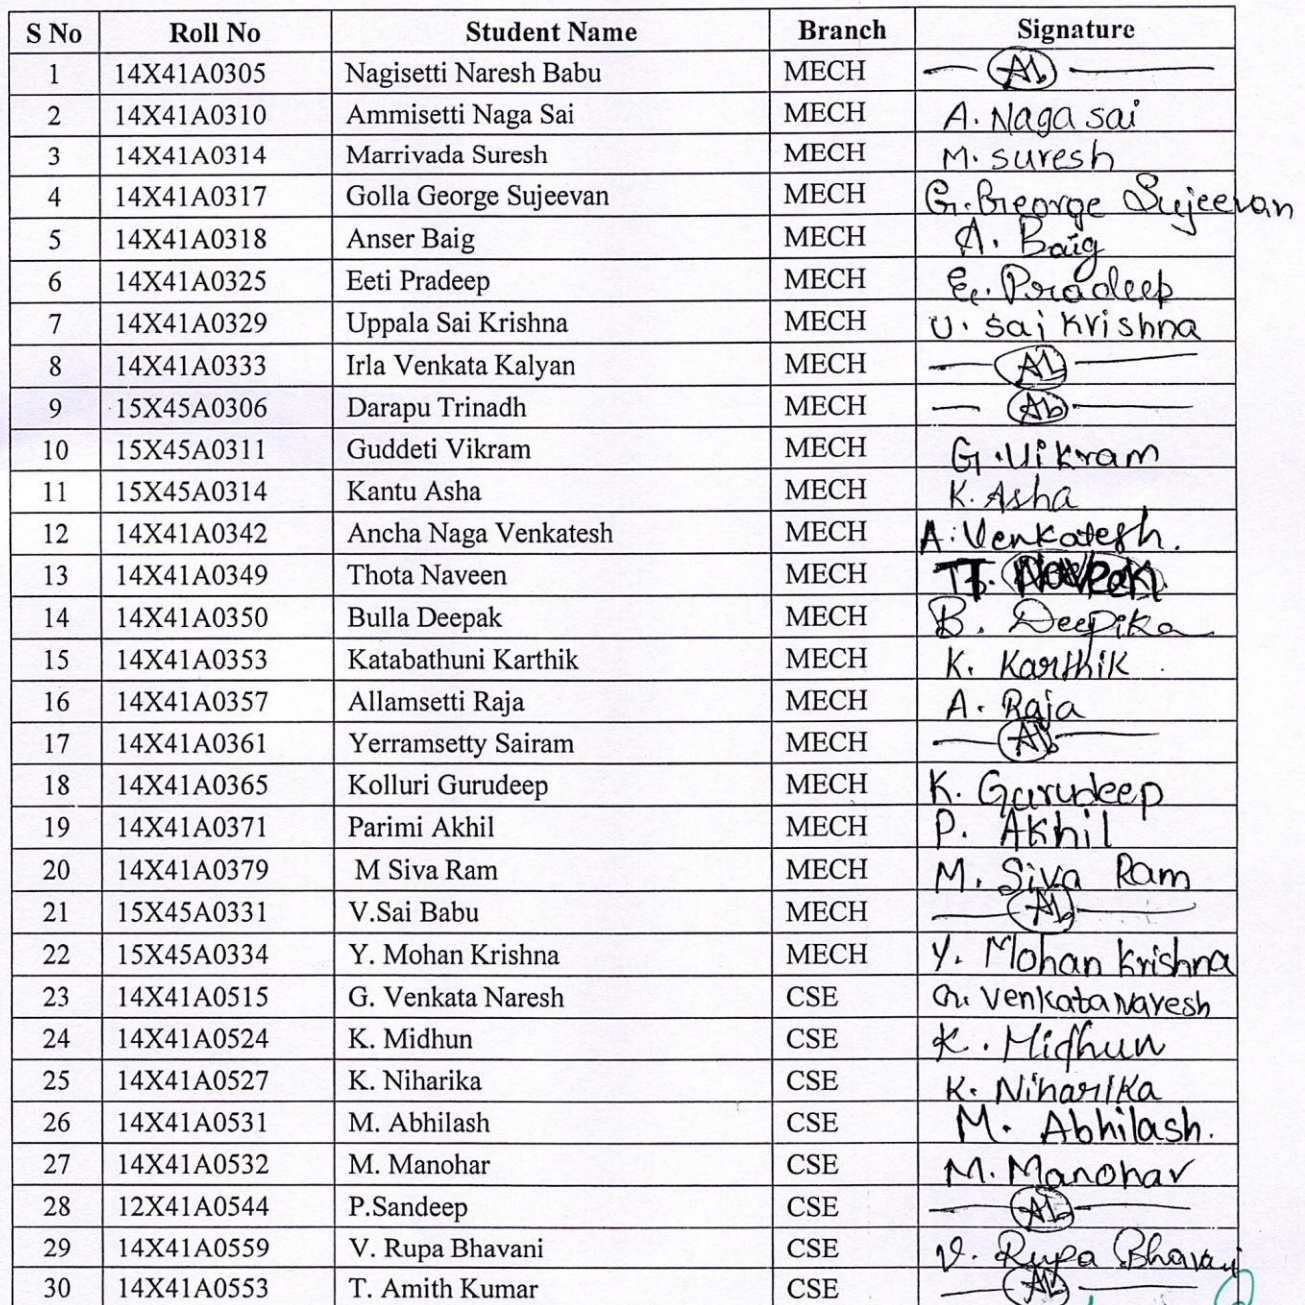 S No Roll No Student Name Branch Signature
1 14X41A0305 Nagisetti Naresh Babu MECH Ab
2 14X41A0310 Ammisetti Naga Sai MECH A. Naga sai
3 14X41A0314 Marrivada Suresh MECH M. suresh
4 14X41A0317 Golla George Sujeevan MECH G. George Sujeevan
5 14X41A0318 Anser Baig MECH A. Baig
6 14X41A0325 Eeti Pradeep MECH E. Pradeep
7 14X41A0329 Uppala Sai Krishna MECH U. Sai Krishna
8 14X41A0333 Irla Venkata Kalyan MECH Ab
9 15X45A0306 Darapu Trinadh MECH Ab
10 15X45A0311 Guddeti Vikram MECH G. Vikram
11 15X45A0314 Kantu Asha MECH K. Asha
12 14X41A0342 Ancha Naga Venkatesh MECH A. Venkatesh.
13 14X41A0349 Thota Naveen MECH T. Naveen
14 14X41A0350 Bulla Deepak MECH B. Deepika
15 14X41A0353 Katabathuni Karthik MECH K. Karthik
16 14X41A0357 Allamsetti Raja MECH A. Raja
17 14X41A0361 Yerramsetty Sairam MECH Ab
18 14X41A0365 Kolluri Gurudeep MECH K. Gurudeep
19 14X41A0371 Parimi Akhil MECH P. Akhil
20 14X41A0379 M Siva Ram MECH M. Siva Ram
21 15X45A0331 V.Sai Babu MECH Ab
22 15X45A0334 Y. Mohan Krishna MECH Y. Mohan Krishna
23 14X41A0515 G. Venkata Naresh CSE G. Venkata Naresh
24 14X41A0524 K. Midhun CSE K. Midhun
25 14X41A0527 K. Niharika CSE K. Niharika
26 14X41A0531 M. Abhilash CSE M. Abhilash.
27 14X41A0532 M. Manohar CSE M. Manohar
28 12X41A0544 P.Sandeep CSE Ab
29 14X41A0559 V. Rupa Bhavani CSE V. Rupa Bhavani
30 14X41A0553 T. Amith Kumar CSE Ab